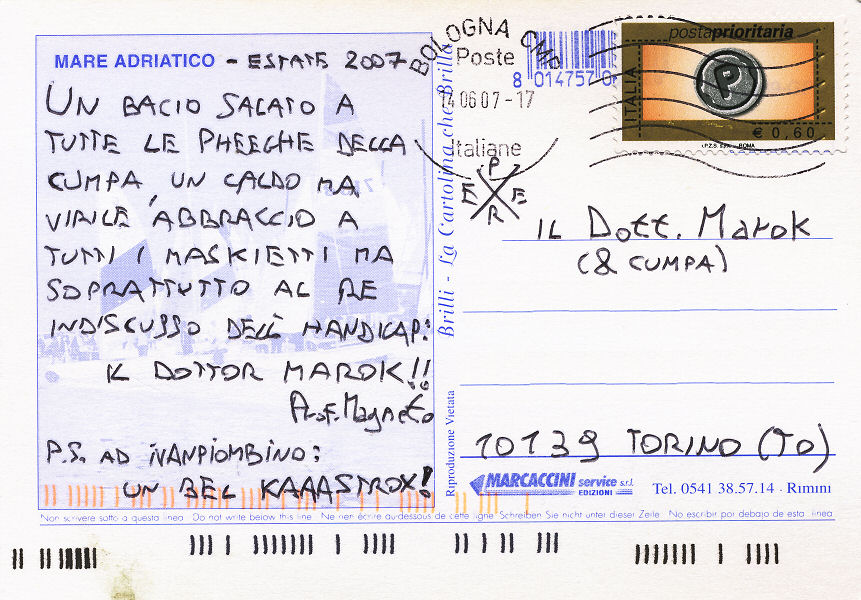 MARE ADRIATICO - ESTATE 2007
UN BACIO SALATO A
TUTTE LE PHEEGHE DELLA
CUMPA, UN CALDO MA
VIRILE ABBRACCIO A
TUTTI I MASKIETTI MA
SOPRATTUTTO AL RE
INDISCUSSO DELL'HANDICAP:
IL DOTTOR MAROK!!
Prof. Magneto
P.S. AD IVANPIOMBINO:
UN BEL KAAASTROX!
Brilli - La Cartolina che Brilla
Riproduzione Vietata
BOLOGNA CMP
Poste
14 06 07 - 17
Italiane
8 014757 0
postaprioritaria
P
ITALIA
€ 0,60
I.P.Z.S. S.p.A. - ROMA
P
E E
R
IL Dott. Marok
(& CUMPA)
10139 TORINO (TO)
MARCACCINI service s.r.l.
EDIZIONI
Tel. 0541 38.57.14 - Rimini
Non scrivere sotto a questa linea Do not write below this line Ne rien écrire au-dessous de cette ligne Schreiben Sie nicht unter dieser Zeile No escribir por debajo de esta linea